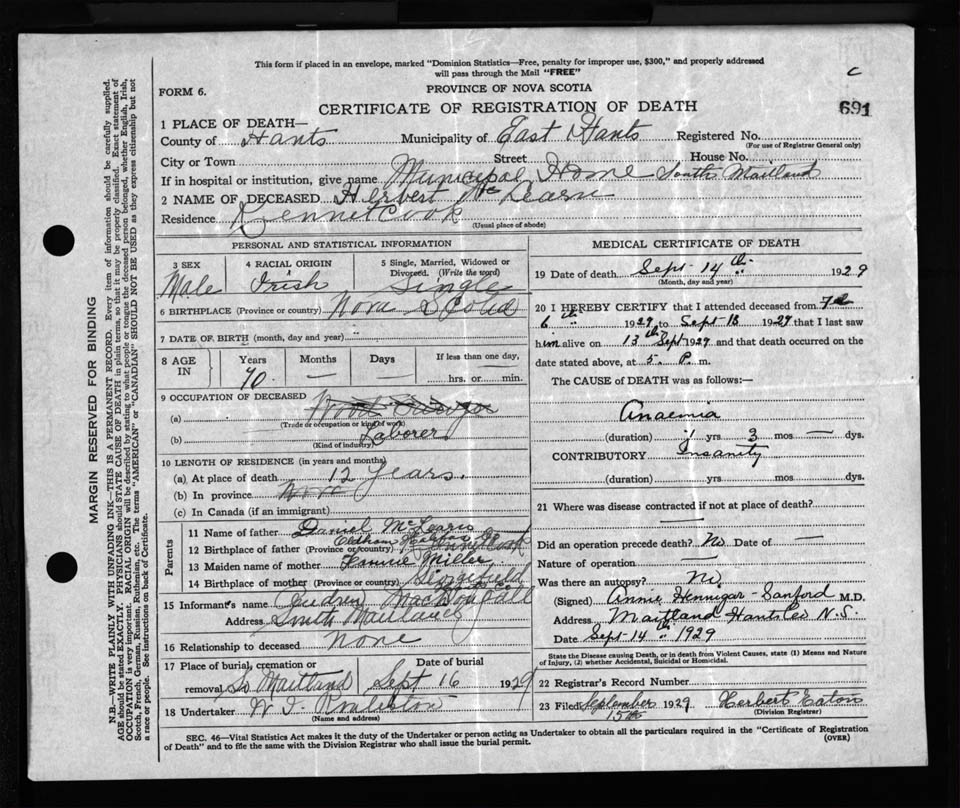 This form if placed in an envelope, marked "Dominion Statistics—Free, penalty for improper use, $300," and properly addressed
will pass through the Mail "FREE"
C
FORM 6.
PROVINCE OF NOVA SCOTIA
CERTIFICATE OF REGISTRATION OF DEATH
691
1 PLACE OF DEATH—
County of Hants Municipality of East Hants Registered No.
(For use of Registrar General only)
City or Town Street House No.
If in hospital or institution, give name Municipal Home South Maitland
2 NAME OF DECEASED Herbert Mc Learn
Residence Kennetcook
(Usual place of abode)
PERSONAL AND STATISTICAL INFORMATION
3 SEX 4 RACIAL ORIGIN 5 Single, Married, Widowed or
Divorced. (Write the word)
Male Irish Single
6 BIRTHPLACE (Province or country) Nova Scotia
7 DATE OF BIRTH (month, day and year)
8 AGE IN Years Months Days If less than one day,
70 — hrs. or min.
9 OCCUPATION OF DECEASED
(a)
(Trade or occupation or kind of work)
(b) Laborer
(Kind of industry)
10 LENGTH OF RESIDENCE (in years and months)
(a) At place of death 12 years.
(b) In province
(c) In Canada (if an immigrant)
Parents
11 Name of father Daniel McLearn
12 Birthplace of father (Province or country)
13 Maiden name of mother Miller
14 Birthplace of mother (Province or country)
15 Informant's name MacDougall
Address South Maitland
16 Relationship to deceased None
17 Place of burial, cremation or Date of burial
removal So Maitland Sept 16 1929
18 Undertaker
(Name and address)
MEDICAL CERTIFICATE OF DEATH
19 Date of death Sept 14th 1929
(Month, day and year)
20 I HEREBY CERTIFY that I attended deceased from
6th 1929 to Sept 1929 that I last saw
him alive on 13th Sept 1929 and that death occurred on the
date stated above, at 5. P. m.
The CAUSE OF DEATH was as follows:—
Anaemia
(duration) yrs 3 mos — dys.
CONTRIBUTORY Insanity
(duration) yrs. mos. dys.
21 Where was disease contracted if not at place of death?
—
Did an operation precede death? No Date of —
Nature of operation —
Was there an autopsy? No
(Signed) Annie Hennigar-Sanford M.D.
Address Maitland Hants Co N.S.
Date Sept 14th 1929
State the Disease causing Death, or in death from Violent Causes, state (1) Means and Nature
of Injury, (2) whether Accidental, Suicidal or Homicidal.
22 Registrar's Record Number
23 Filed September 15th 1929 Herbert Eaton
(Division Registrar)
SEC. 46—Vital Statistics Act makes it the duty of the Undertaker or person acting as Undertaker to obtain all the particulars required in the "Certificate of Registration
of Death" and to file the same with the Division Registrar who shall issue the burial permit.
(OVER)
MARGIN RESERVED FOR BINDING
N.B.—WRITE PLAINLY WITH UNFADING INK—THIS IS A PERMANENT RECORD. Every item of information should be carefully supplied.
AGE should be stated EXACTLY. PHYSICIANS should STATE CAUSE OF DEATH in plain terms, so that it may be properly classified. Exact statement of
OCCUPATION is very important. RACIAL ORIGIN will be described by stating to what people or tongue the deceased person belonged, whether English, Irish,
Scotch, French, German, Russian, Ruthenian, etc. The terms "AMERICAN" or "CANADIAN" SHOULD NOT BE USED as they express citizenship but not
a race or people. See instructions on back of Certificate.